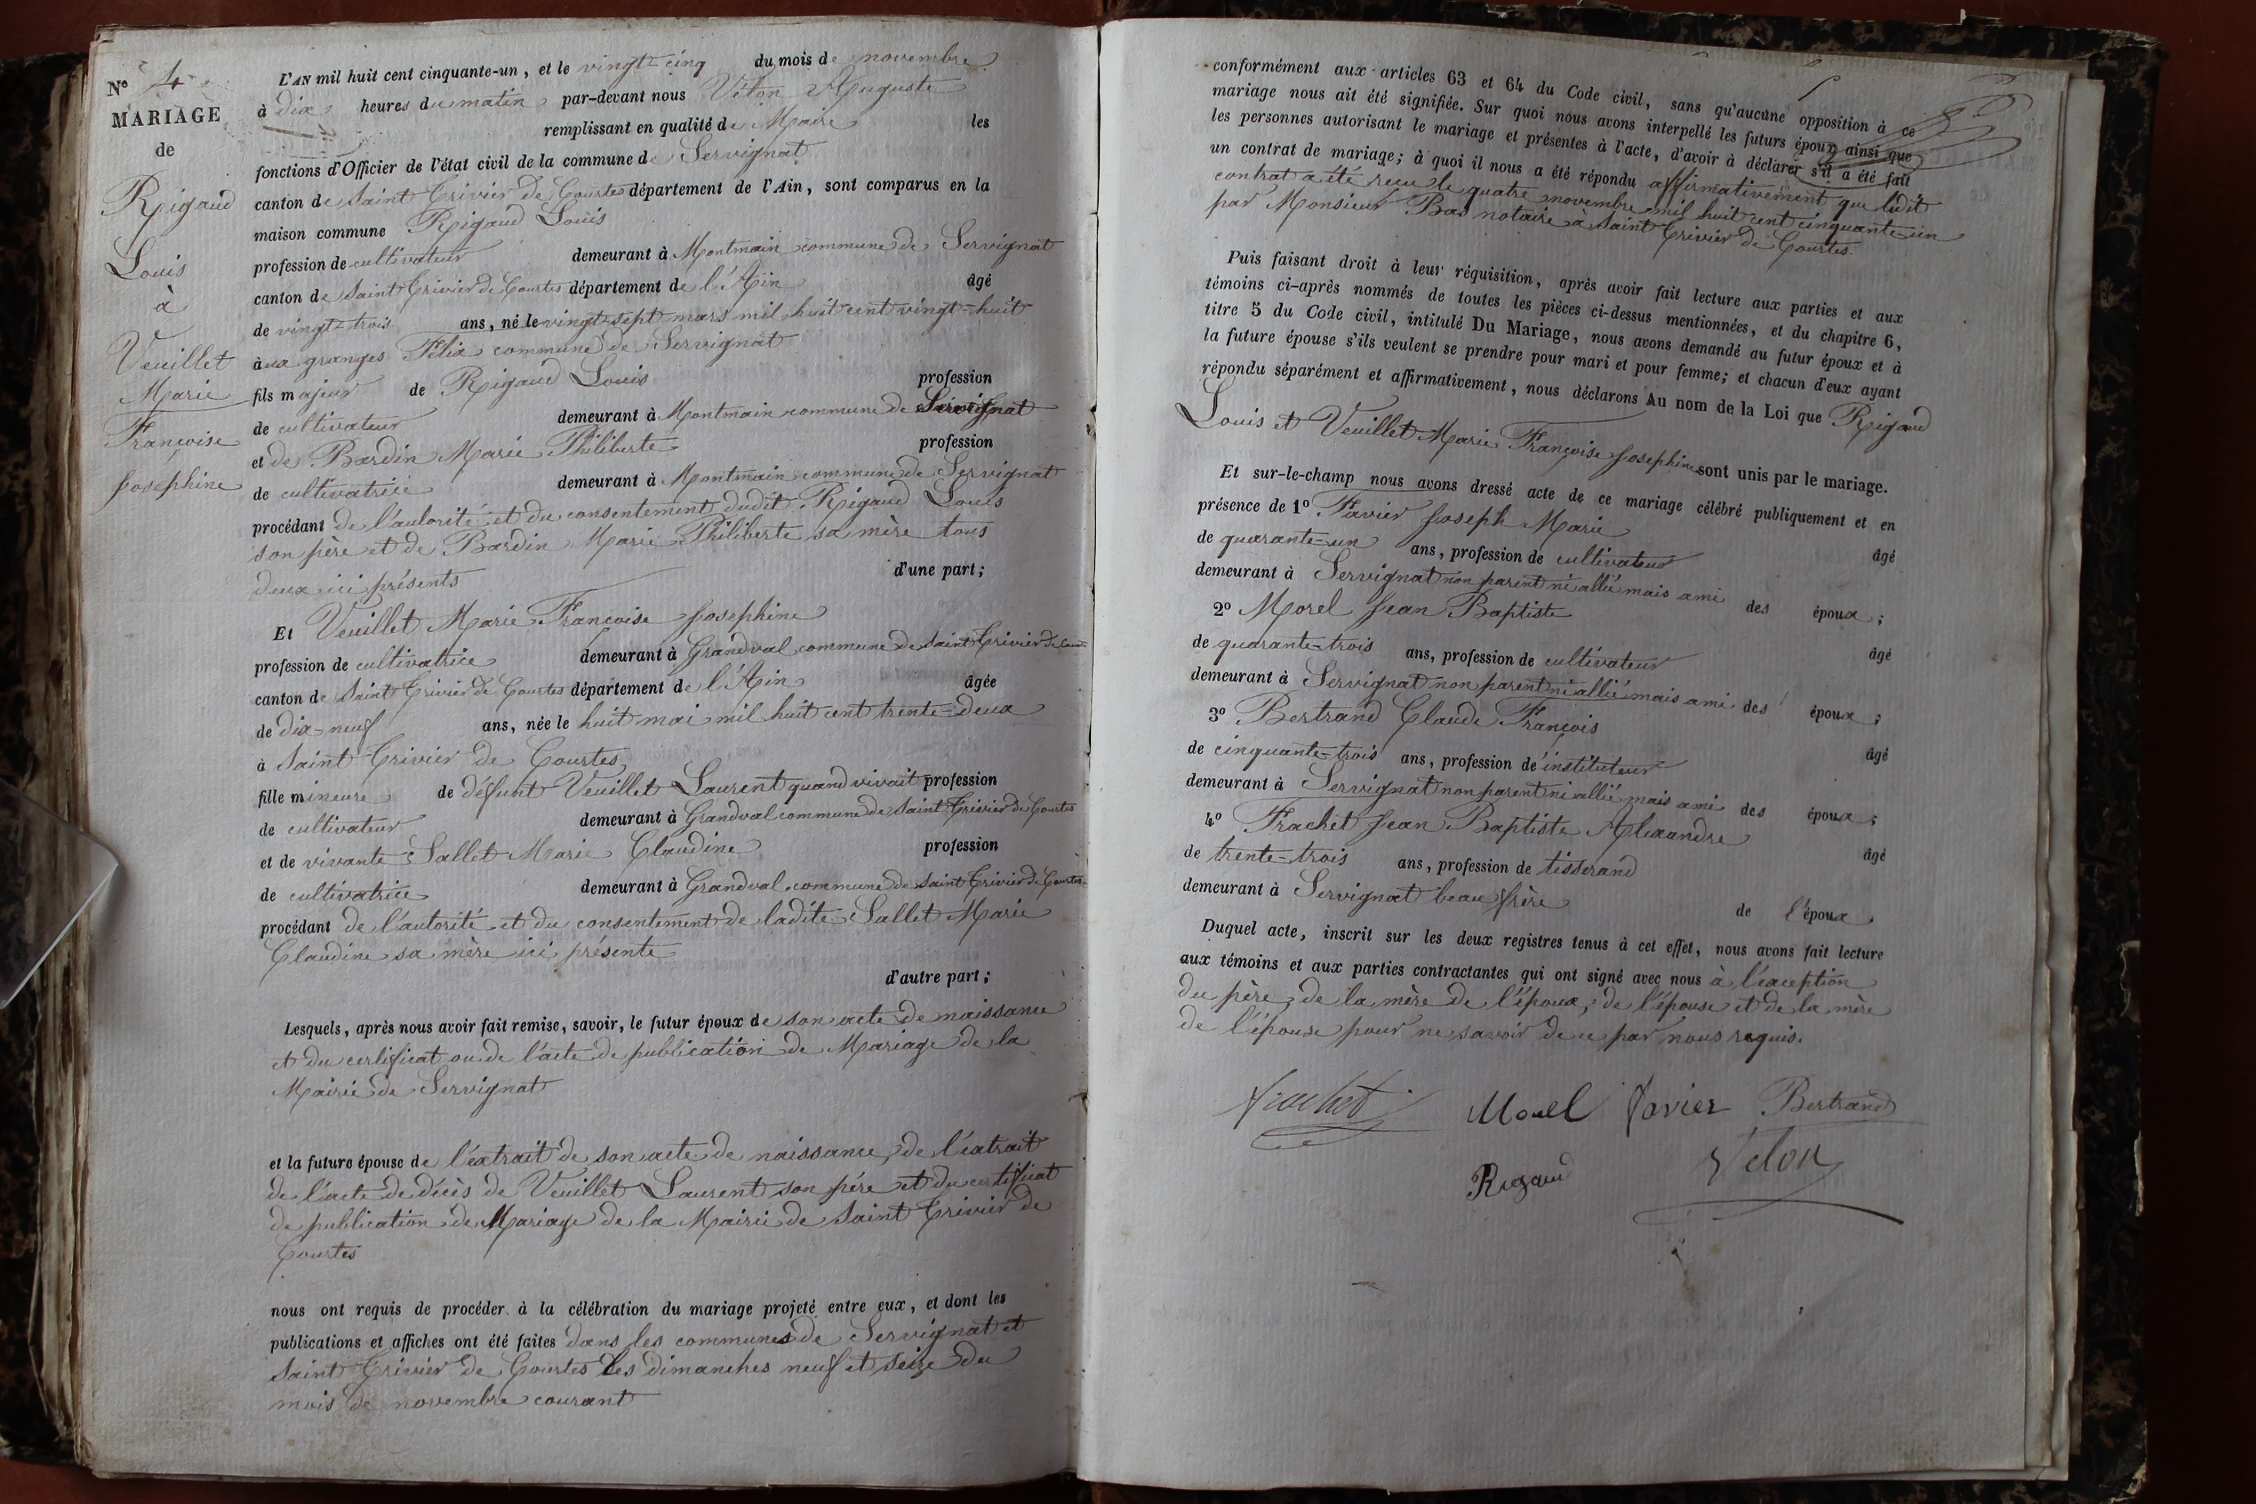 N° 4
MARIAGE
de
Rigaud
Louis
à
Veuillet
Marie
Françoise
Joséphine
L'AN mil huit cent cinquante-un, et le vingt-cinq du mois de novembre
à dix heures du matin par-devant nous Véton Auguste
remplissant en qualité de Maire les
fonctions d'Officier de l'état civil de la commune de Servignat
canton de Saint Trivier de Courtes département de l'Ain, sont comparus en la
maison commune Rigaud Louis
profession de cultivateur demeurant à Montmain commune de Servignat
canton de Saint Trivier de Courtes département de l'Ain âgé
de vingt-trois ans, né le vingt-sept mars mil huit cent vingt-huit
à aux granges Félix commune de Servignat
fils majeur de Rigaud Louis profession
de cultivateur demeurant à Montmain commune de Servignat
et de Bardin Marie Philiberte profession
de cultivatrice demeurant à Montmain commune de Servignat
procédant de l'autorité et du consentement dudit Rigaud Louis
son père et de Bardin Marie Philiberte sa mère tous
deux ici présents d'une part;
Et Veuillet Marie Françoise Joséphine
profession de cultivatrice demeurant à Grandval commune de Saint Trivier de Cour
canton de Saint Trivier de Courtes département de l'Ain âgée
de dix-neuf ans, née le huit mai mil huit cent trente-deux
à Saint Trivier de Courtes
fille mineure de défunt Veuillet Laurent quand vivait profession
de cultivateur demeurant à Grandval commune de Saint Trivier de Courtes
et de vivante Sallet Marie Claudine profession
de cultivatrice demeurant à Grandval commune de Saint Trivier de Courtes
procédant de l'autorité et du consentement de ladite Sallet Marie
Claudine sa mère ici présente
d'autre part;
Lesquels, après nous avoir fait remise, savoir, le futur époux de son acte de naissance
et du certificat ou de l'acte de publication de Mariage de la
Mairie de Servignat
et la future épouse de l'extrait de son acte de naissance, de l'extrait
de l'acte de décès de Veuillet Laurent son père et du certificat
de publication de Mariage de la Mairie de Saint Trivier de
Courtes
nous ont requis de procéder à la célébration du mariage projeté entre eux, et dont les
publications et affiches ont été faites dans les communes de Servignat et
Saint Trivier de Courtes les dimanches neuf et seize du
mois de novembre courant
conformément aux articles 63 et 64 du Code civil, sans qu'aucune opposition à ce
mariage nous ait été signifiée. Sur quoi nous avons interpellé les futurs époux ainsi que
les personnes autorisant le mariage et présentes à l'acte, d'avoir à déclarer s'il a été fait
un contrat de mariage; à quoi il nous a été répondu affirmativement que ledit
contrat a été reçu le quatre novembre mil huit cent cinquante-un
par Monsieur Bas notaire à Saint Trivier de Courtes.
Puis faisant droit à leur réquisition, après avoir fait lecture aux parties et aux
témoins ci-après nommés de toutes les pièces ci-dessus mentionnées, et du chapitre 6,
titre 5 du Code civil, intitulé Du Mariage, nous avons demandé au futur époux et à
la future épouse s'ils veulent se prendre pour mari et pour femme; et chacun d'eux ayant
répondu séparément et affirmativement, nous déclarons Au nom de la Loi que Rigaud
Louis et Veuillet Marie Françoise Joséphine sont unis par le mariage.
Et sur-le-champ nous avons dressé acte de ce mariage célébré publiquement et en
présence de 1° Favier Joseph Marie
de quarante-un ans, profession de cultivateur âgé
demeurant à Servignat non parent ni allié mais ami des époux;
2° Morel Jean Baptiste
de quarante-trois ans, profession de cultivateur âgé
demeurant à Servignat non parent ni allié mais ami des époux;
3° Bertrand Claude François
de cinquante-trois ans, profession de instituteur âgé
demeurant à Servignat non parent ni allié mais ami des époux;
4° Frachet Jean Baptiste Alexandre
de trente-trois ans, profession de tisserand âgé
demeurant à Servignat beau frère de l'époux.
Duquel acte, inscrit sur les deux registres tenus à cet effet, nous avons fait lecture
aux témoins et aux parties contractantes qui ont signé avec nous à l'exception
du père, de la mère de l'époux; de l'épouse et de la mère
de l'épouse pour ne savoir de ce par nous requis.
Frachet Morel Favier Bertrand
Rigaud Véton